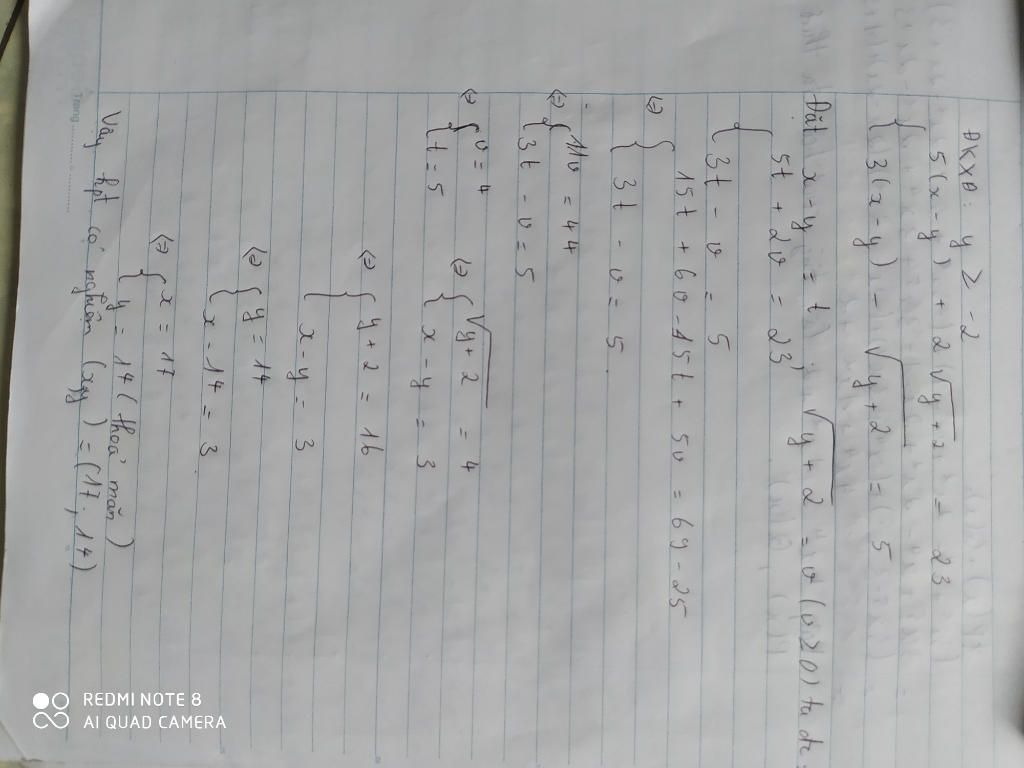 ĐKXĐ: y ≥ -2
{ 5(x-y) + 2√(y+2) = 23
{ 3(x-y) - √(y+2) = 5
Đặt x-y = t, √(y+2) = v (v≥0) ta đc:
{ 5t + 2v = 23
{ 3t - v = 5
(=) { 15t + 6v - 15t + 5v = 69 - 25
{ 3t - v = 5
(=) { 11v = 44
{ 3t - v = 5
(=) { v = 4
{ t = 5
(=) { √(y+2) = 4
{ x - y = 3
(=) { y + 2 = 16
{ x - y = 3
(=) { y = 14
{ x - 14 = 3
(=) { x = 17
{ y = 14 (thoả mãn)
Vậy hpt có nghiệm (x;y) = (17; 14)
Trang
REDMI NOTE 8
AI QUAD CAMERA